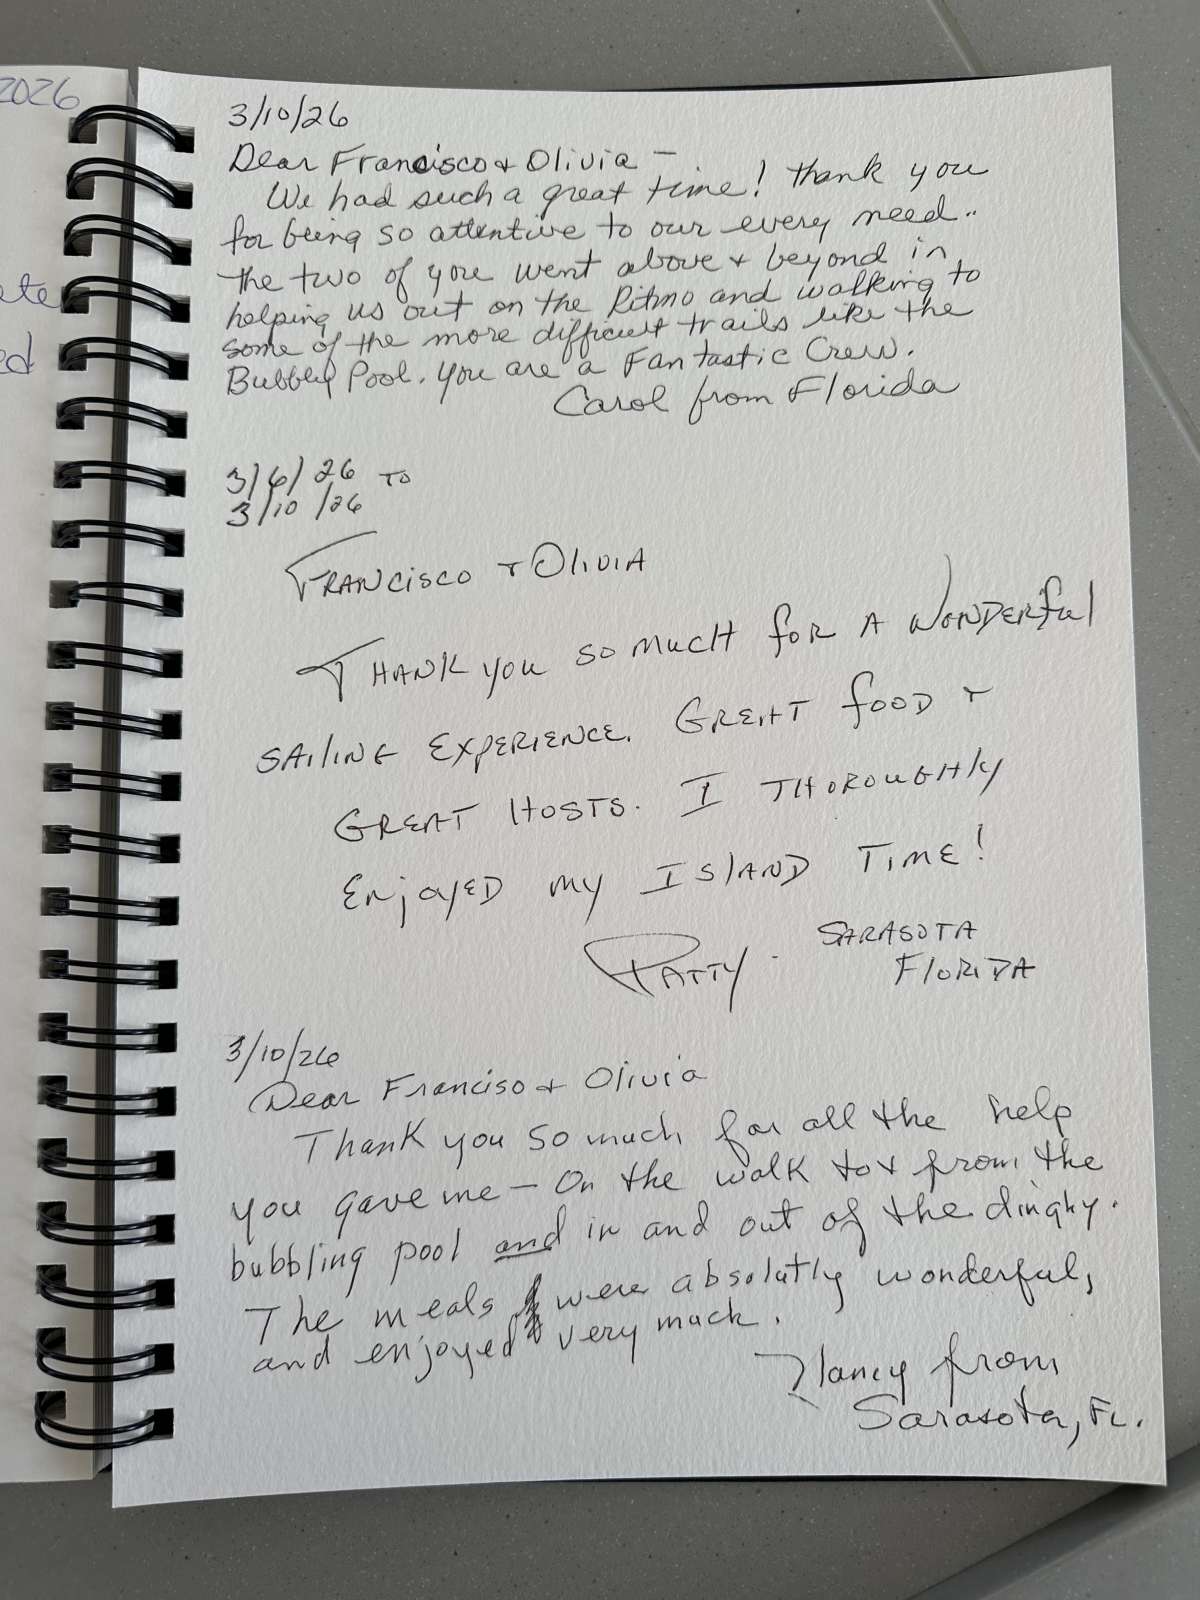 2026
ete
ed
3/10/26
Dear Francisco & Olivia —
We had such a great time! thank you
for being so attentive to our every need..
the two of you went above & beyond in
helping us out on the Ritmo and walking to
some of the more difficult trails like the
Bubbly Pool. You are a Fantastic Crew.
Carol from Florida
3/6/26 TO
3/10/26
FRANCISCO & OLIVIA
THANK YOU SO MUCH FOR A WONDERFUL
SAILING EXPERIENCE. GREAT FOOD &
GREAT HOSTS. I THOROUGHLY
ENJOYED MY ISLAND TIME!
PATTY - SARASOTA
FLORIDA
3/10/26
Dear Franciso & Olivia
Thank you so much for all the help
you gave me — On the walk to & from the
bubbling pool and in and out of the dinghy.
The meals were absolutly wonderful,
and enjoyed very much.
Nancy from
Sarasota, FL.